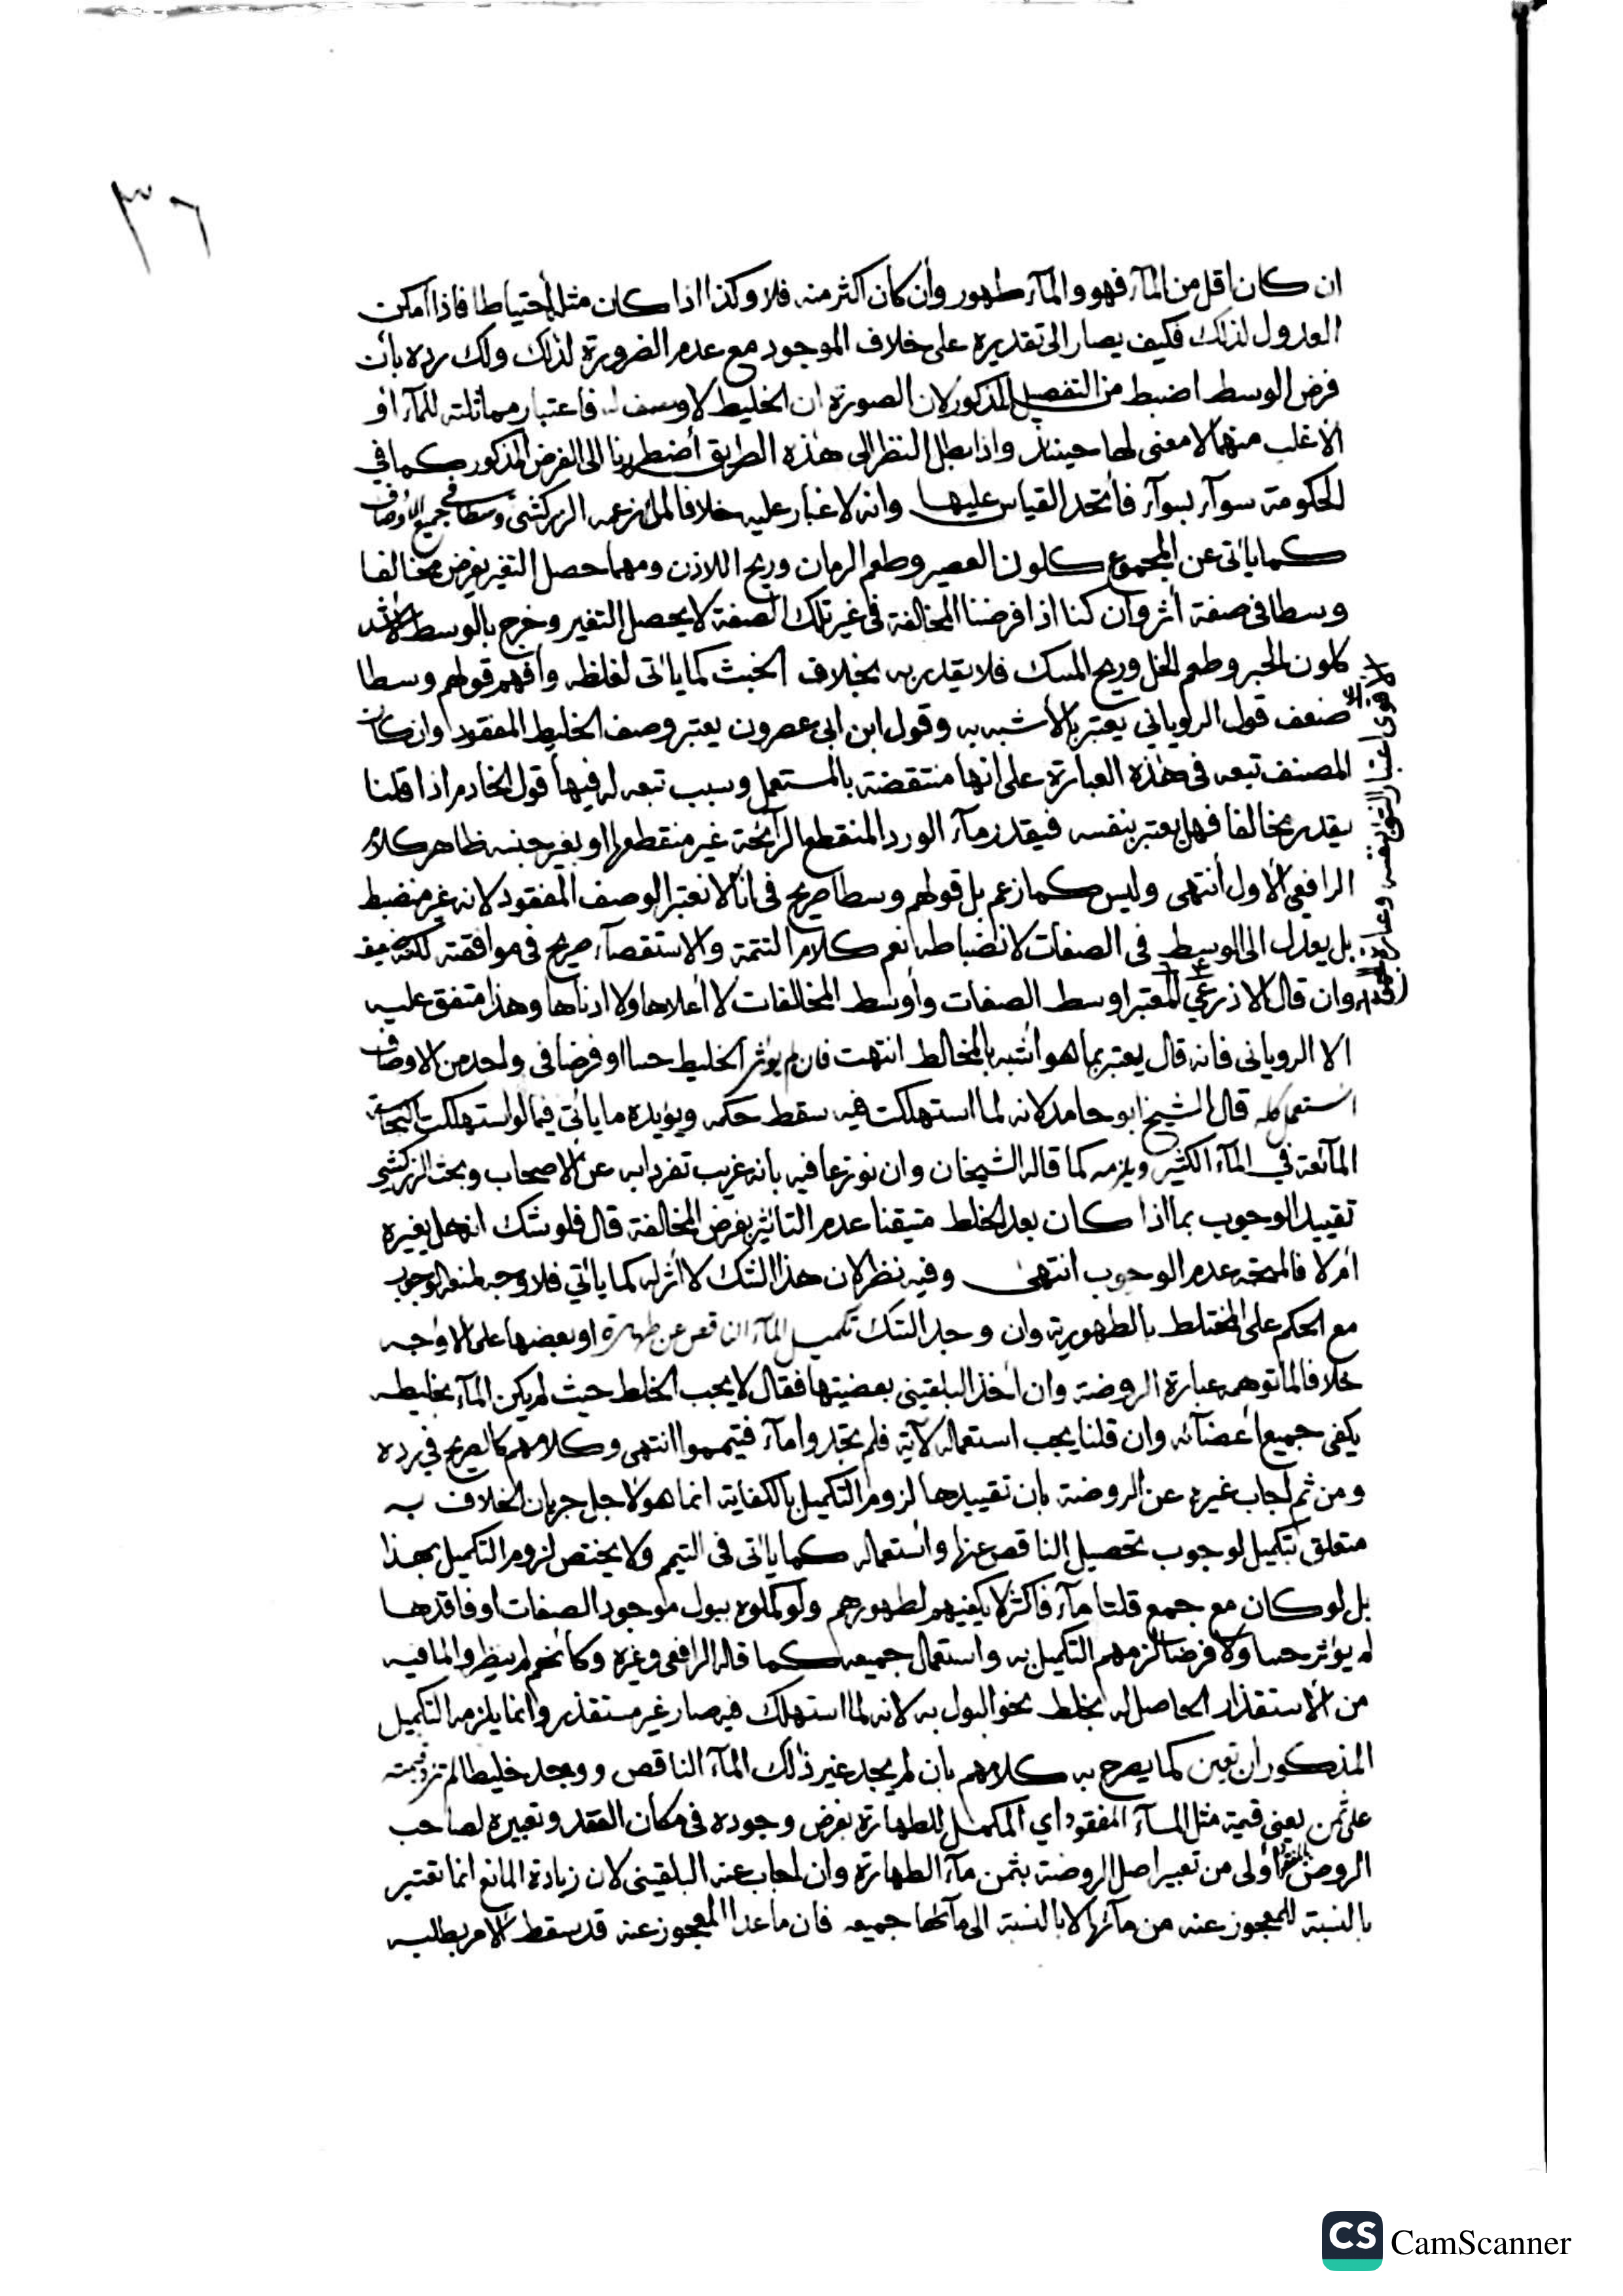 ٣٦
ان كان اقل من المآء فهو والمآء طهور وأن كان اكثر منه فلا وكذا اذا كان مثله احتياطا فاذا امكن
العدول لذلك فكيف يصار الى تقديره على خلاف الموجود مع عدم الضرورة لذلك ولك رده بأن
فرض الوسط اضبط من التفصيل المذكور لان الصورة ان الخليط لا وصف له فاعتبار مماثلته للمآء او
الاغلب منهما لا معنى لها حينئذ واذا بطل النظر الى هذه الطريق أضطررنا الى الفرض المذكور كما في
الحكومة سوآء بسوآء فأتحد القياس عليها وانه لا غبار عليه خلافا لما زعمه الزركشي وسطا في جميع الاوصاف
كما ياتى عن المجموع كلون العصير وطعم الرمان وريح اللاذن ومهما حصل التغير بفرض مخالفا
وسطا في صفة أثر وان كنا اذا فرضنا المخالفة في غير تلك الصفة لا يحصل التغير وخرج بالوسط الاشد
كلون الحبر وطعم الخل وريح المسك فلا يقدر به بخلاف الخبث كما ياتى لغلظه وأفهم قولهم وسطا
ضعف قول الروياني يعتبر بالأشبه به وقول ابن ابى عصرون يعتبر وصف الخليط المفقود وان كان
المصنف تبعه في هذه العبارة على انها منتقضة بالمستعمل وسبب تبعه له فيها قول الخادم اذا قلنا
يقدر مخالفا فهل يعتبر بنفسه فيقدر مآء الورد المنقطع الرآئحة غير منقطعها او بغير جنسه ظاهر كلام
الرافعي الأول أنتهى وليس كما زعم بل قولهم وسطا صريح فى انا لا نعتبر الوصف المفقود لانه غير منضبط
بل يعدل الى الوسط في الصفات لانضباطه نعم كلام التتمة والاستقصآء صريح فى موافقته لكنه ضعيف
وان قال الاذرعي المعتبر اوسط الصفات وأوسط المخالفات لا أعلاها ولا ادناها وهذا متفق عليه
الا الروياني فانه قال يعتبر بما هو اشبه بالمخالط انتهت فان لم يؤثر الخليط حسا او فرضا في واحد من الاوصاف
استعمل كله قال الشيخ ابو حامد لانه لما استهلكت فيه سقط حكمه ويؤيده ما ياتي فيما لو استهلكت النجاسة
المآئعة في المآء الكثير ويلزمه كما قاله الشيخان وان نوزعا فيه بانه غريب تفردا به عن الاصحاب وبحث الزركشي
تقييد الوجوب بما اذا كان بعد الخلط متيقنا عدم التاثير بفرض المخالفة قال فلو شك انه هل يغيره
أم لا فالمتجه عدم الوجوب انتهى وفيه نظر لان هذا الشك لا أثر له كما ياتي فلا وجه لمنعه الوجوب
مع الحكم على المختلط بالطهورية وان وجد الشك تكميل المآء الناقص عن طهارة او بعضها على الاوجه
خلافا لما توهمه عبارة الروضة وان أخذ البلقيني بقضيتها فقال لا يجب الخلط حيث لم يكن المآء بخليطه
يكفى جميع أعضآئه وان قلنا يجب استعماله لآية فلم تجدوا مآء فتيمموا انتهى وكلامهم كالصريح في رده
ومن ثم أجاب غيره عن الروضة بان تقييدها لزوم التكميل بالكفاية انما هو لاجل جريان الخلاف به
متعلق بتكميل لوجوب تحصيل الناقص عنها واستعماله كما ياتى فى التيمم ولا يختص لزوم التكميل بهذا
بل لو كان مع جمع قلتا مآء فاكثر لا يكفيهم لطهورهم ولو كملوه ببول موجود الصفات او فاقدها
لم يؤثر حسا ولا فرضا لزمهم التكميل به واستعمال جميعه كما قاله الرافعي وغيره وكأنهم لم ينظروا لما فيه
من الأستقذار الحاصل له بخلط نحو البول به لانه لما استهلك فيه صار غير مستقذر وانما يلزمه التكميل
المذكور ان تعين كما يصرح به كلامهم بان لم يجد غير ذلك المآء الناقص ووجد خليطا لم تزد قيمته
على ثمن يعني قيمة مثل المآء المفقود اي المكمل للطهارة بفرض وجوده فى مكان الفقد وتعبيره لصاحب
الروض بالمفقود أولى من تعبير اصل الروضة بثمن مآء الطهارة وان اجاب عنه البلقيني لان زيادة المانع انما تعتبر
بالنسبة للمعجوز عنه من مآئها لا بالنسبة الى مآئها جميعه فان ما عدا المعجوز عنه قد سقط الامر بطلبه
CS CamScanner